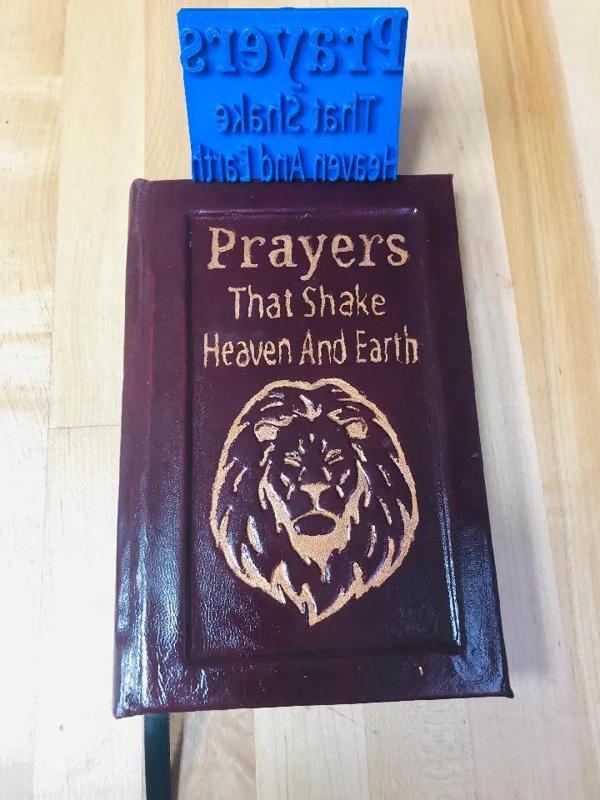 Prayers
That Shake
Heaven And Earth
Prayers
That Shake
Heaven And Earth